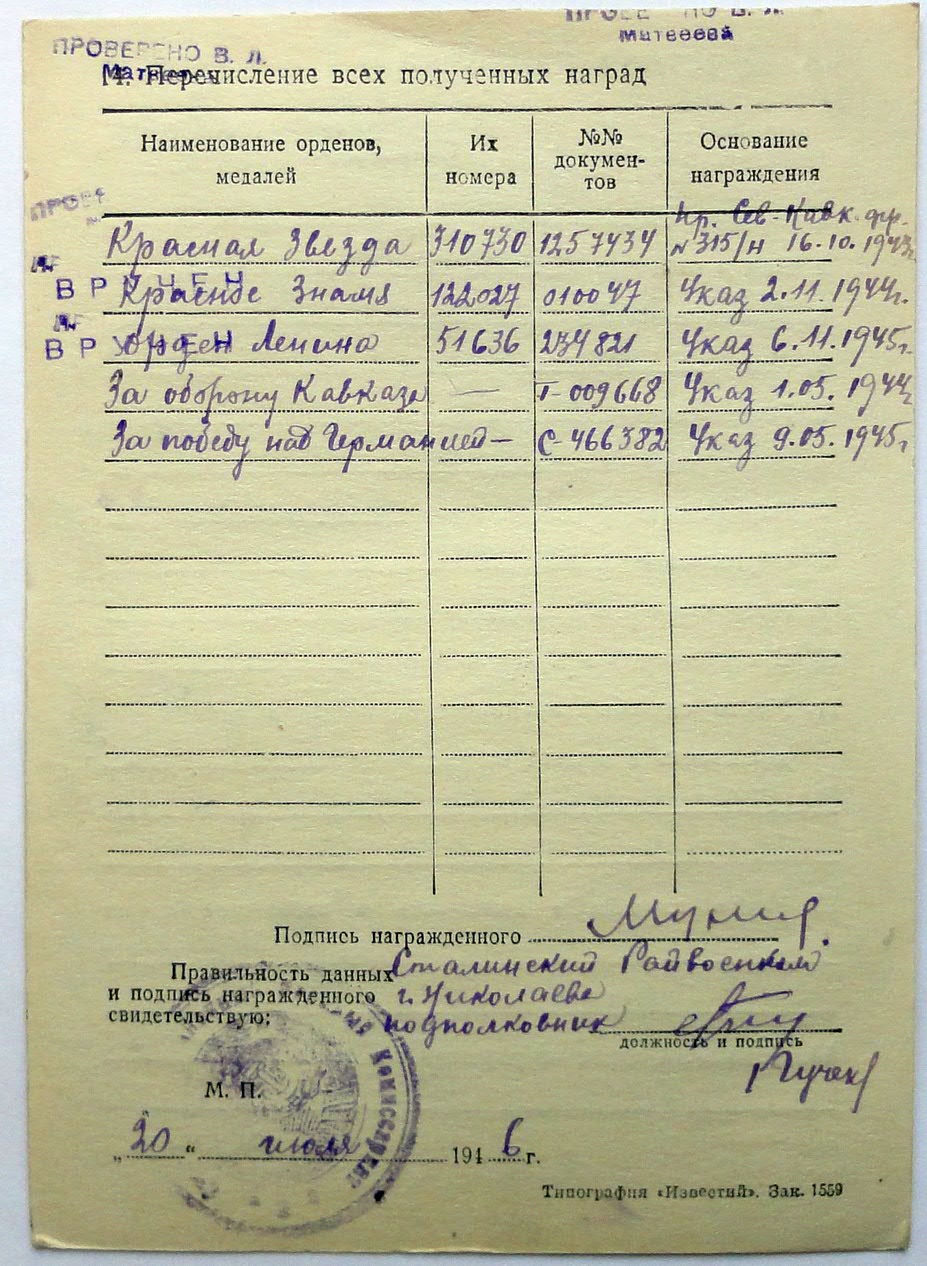 ПРОВЕРЕНО В. Л.
Матвеева
14. Перечисление всех полученных наград
Наименование орденов, медалей
Их номера
№№ документов
Основание награждения
Красная Звезда 310730 1257434 Пр. Сев-Кавк. фр. №315/н 16.10.1943г.
Красное Знамя 122027 010047 Указ 2.11.1944г.
ВРУЧЕН
Орден Ленина 51636 234821 Указ 6.11.1945г.
ВРУЧЕН
За оборону Кавказа — Т-009668 Указ 1.05.1944г.
За победу над Германией — С-466382 Указ 9.05.1945г.
Подпись награжденного
Правильность данных Сталинский Райвоенком
и подпись награжденного г. Николаева
свидетельствую: подполковник
должность и подпись
М. П.
Комиссариат
„20“ июля 1946 г.
Типография «Известий». Зак. 1559